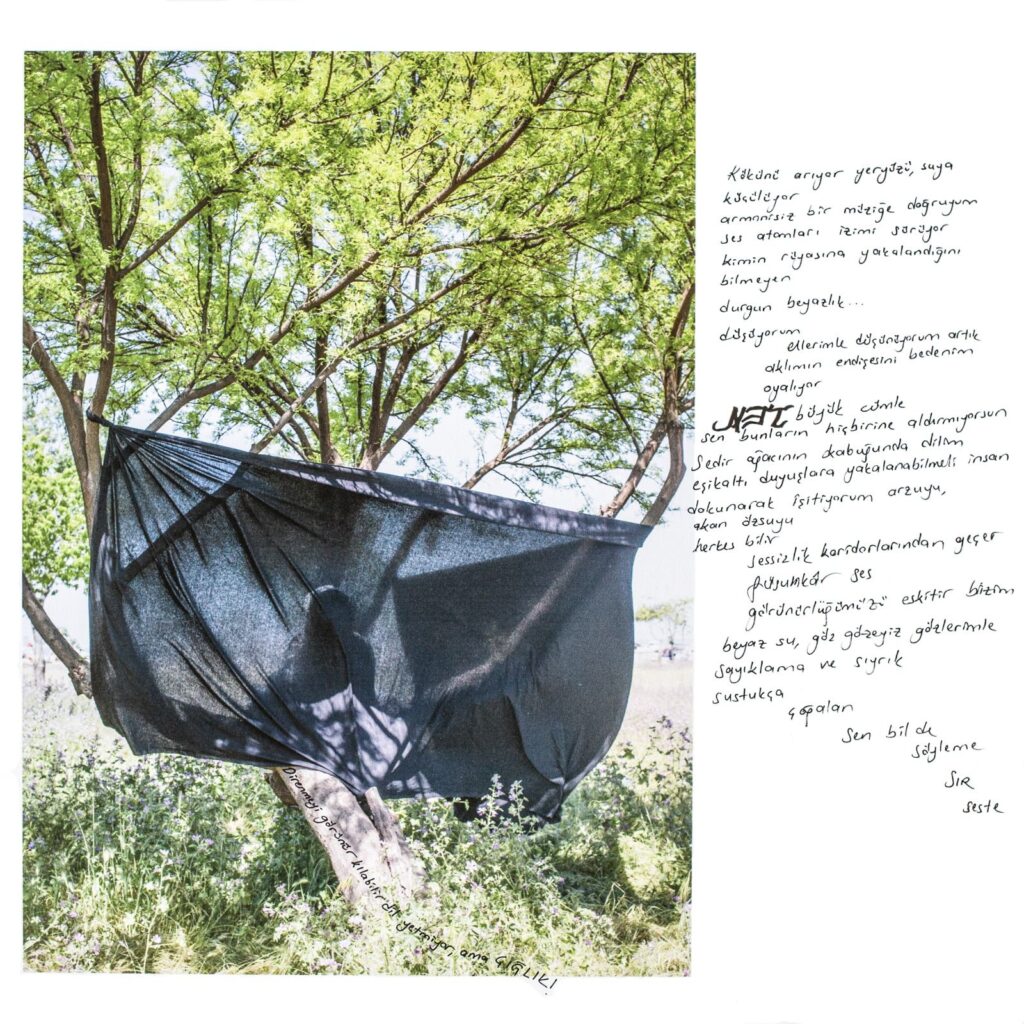 Kökünü arıyor yeryüzü, suya
küçülüyor
armonisiz bir müziğe doğruyum
ses atomları izimi sürüyor
kimin rüyasına yakalandığını
bilmeyen
durgun beyazlık...
düşüyorum
ellerimle düşünüyorum artık
aklımın endişesini bedenim
oyalıyor
büyük cümle
sen bunların hiçbirine aldırmıyorsun
Sedir ağacının kabuğunda dilim
eşikaltı duyuşlara yakalanabilmeli insan
dokunarak işitiyorum arzuyu,
akan özsuyu
herkes bilir
sessizlik koridorlarından geçer
ses
görünürlüğümüzü eskitir bizim
beyaz su, göz gözeyiz gözlerimle
sayıklama ve sıyrık
sustukça
çoğalan
Sen bil de
söyleme
SIR
seste
Direnmeyi görünür kılabilir dil yetmiyor, ama ÇIĞLIK!